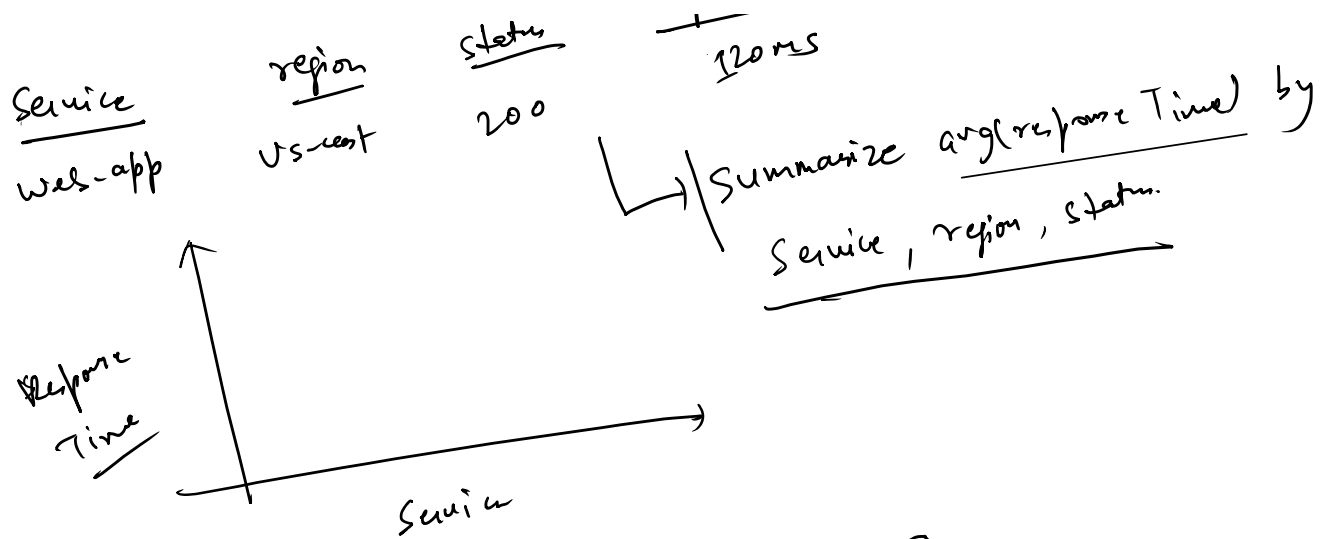 Service region status
web-app 200 120ms
| Summarize avg(response Time) by
Service, region, status.
Response
Time
Service